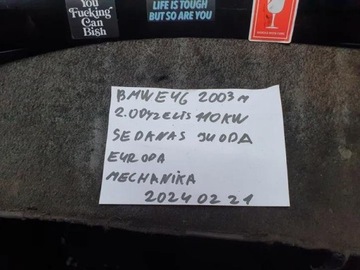 You
Fucking
Can
Bish
LIFE IS TOUGH
BUT SO ARE YOU
BMW E46 2003 M
2.0 DYZELIS 110KW
SEDANAS JUODA
EUROPA
MECHANIKA
2024 02 21